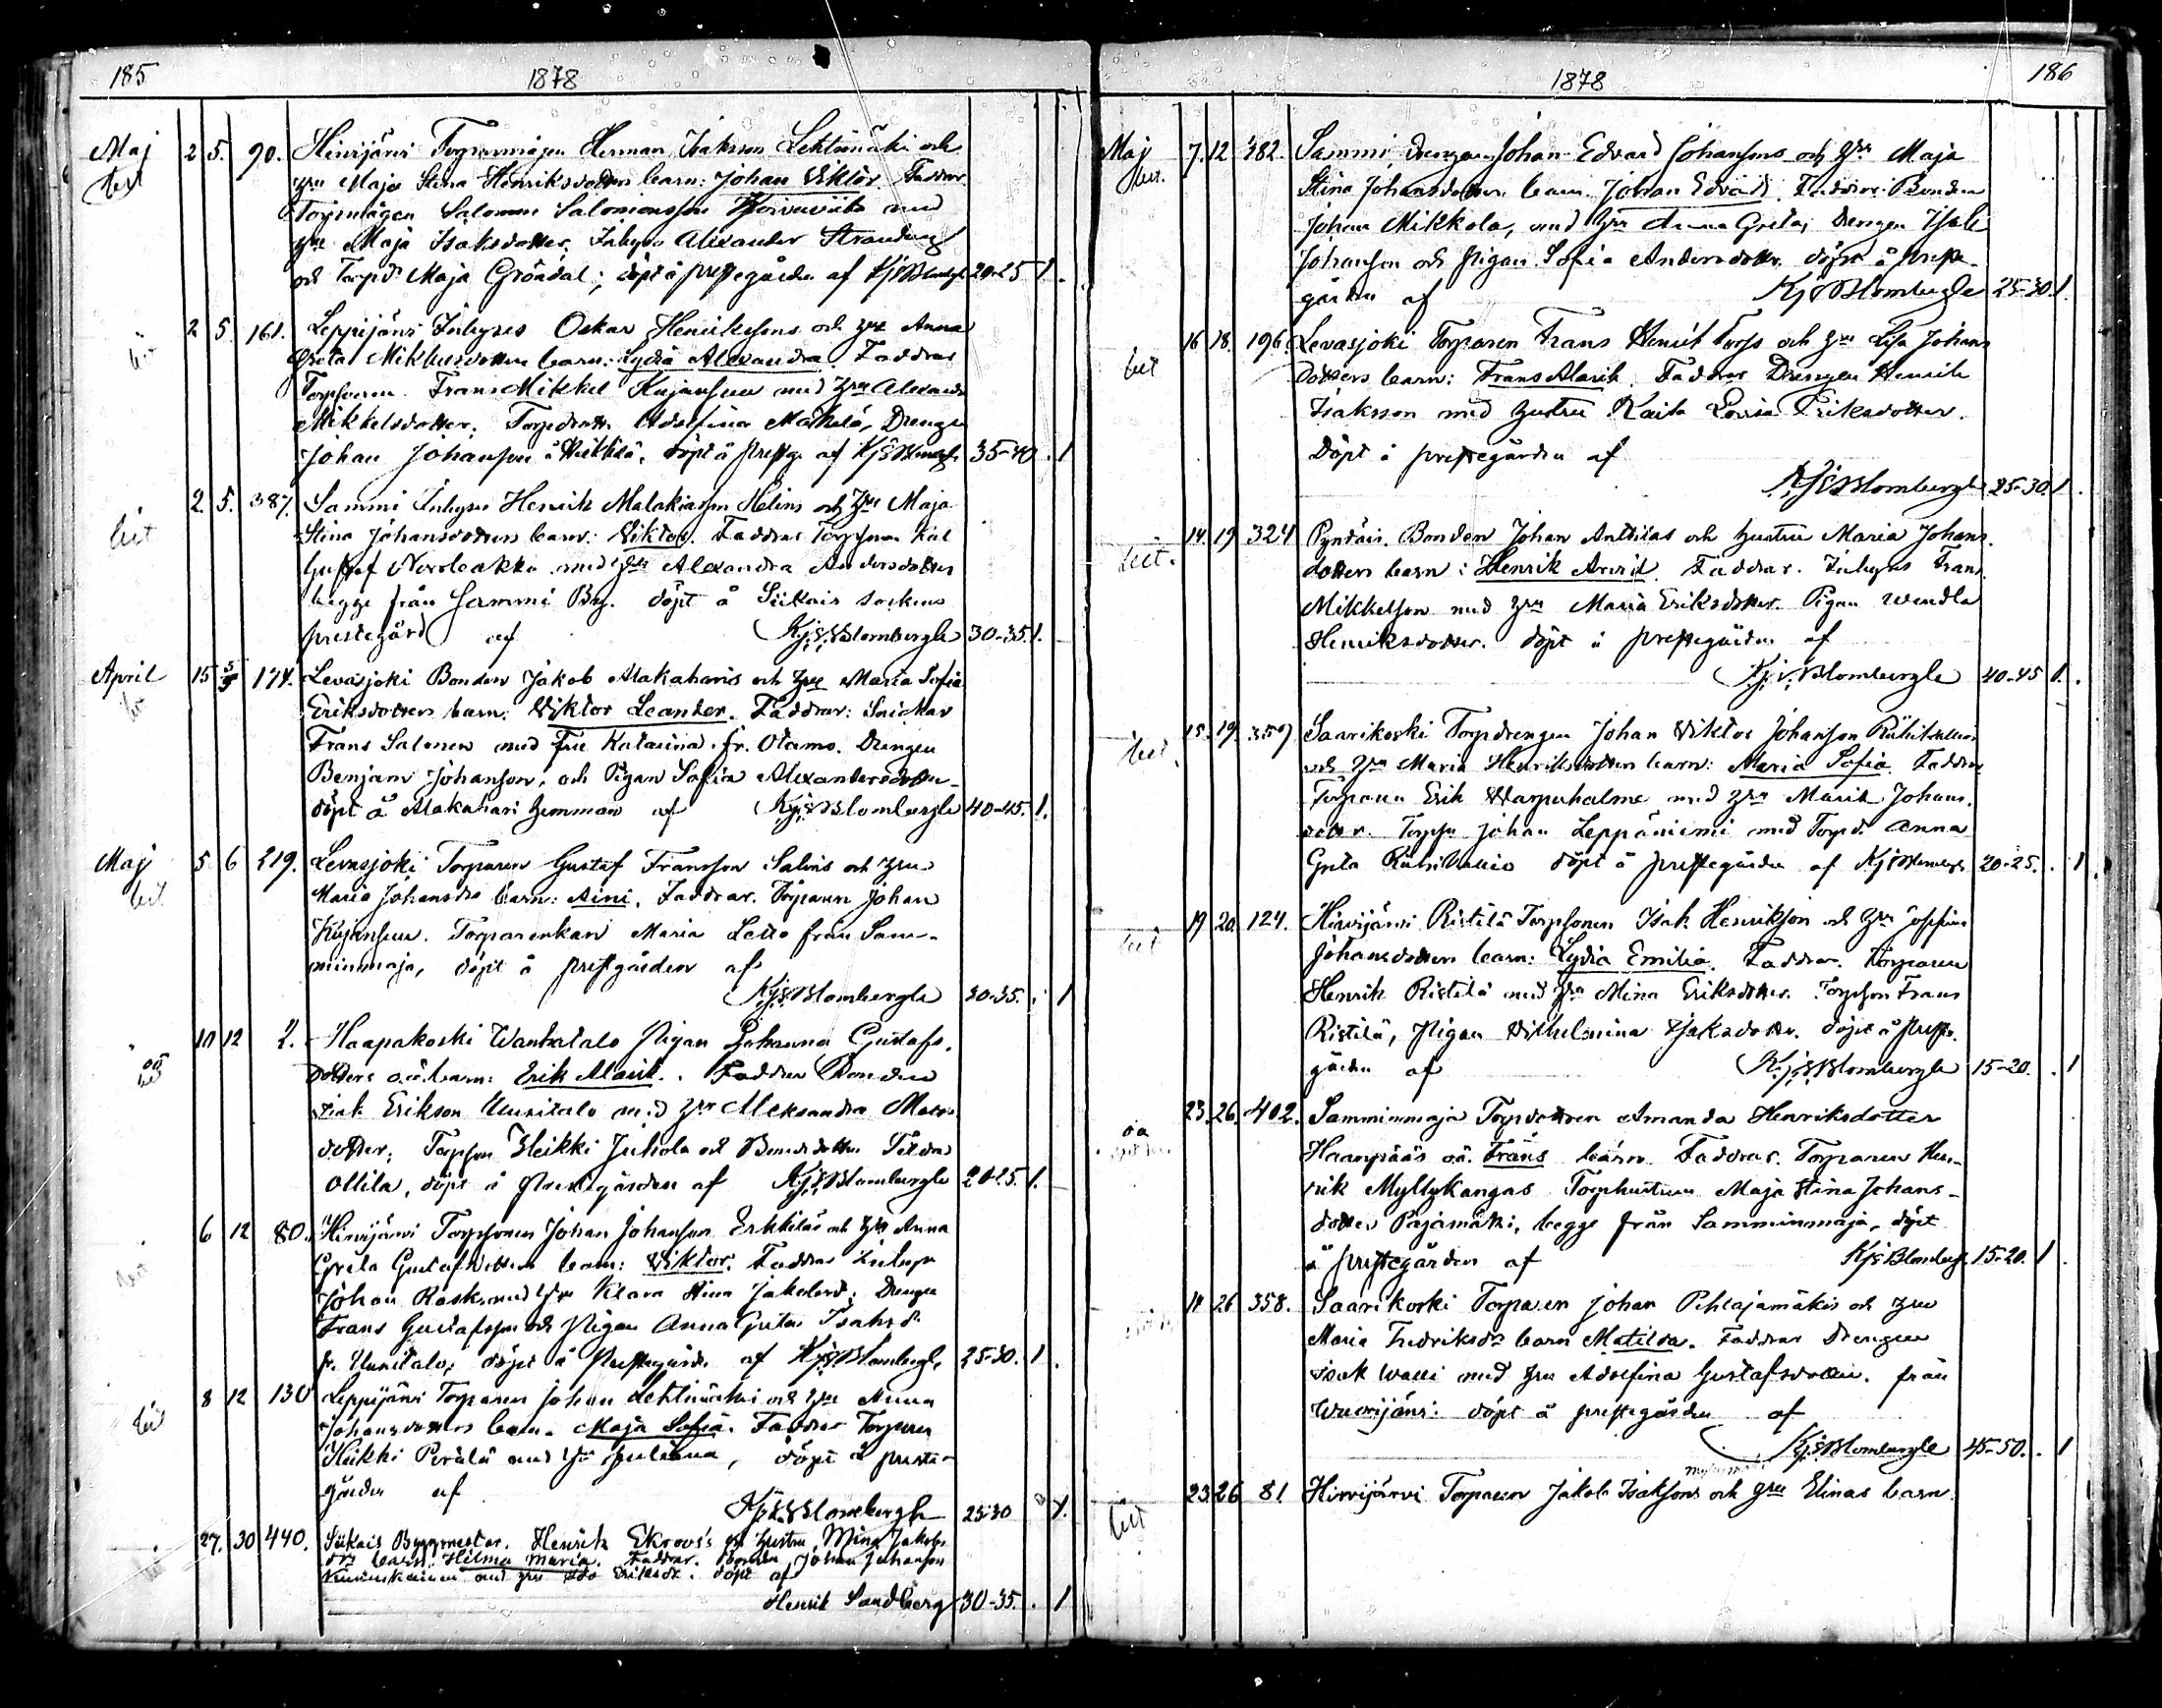 185
1878
Maj 2 5. 90. Hirvijärvi Herman Isaksson Lehtimäki och
hru Maja Stina Henriksdotters barn: Johan Viktor Faddrar
Salomon Salomonsson med
hru Maja Isaksdotter. Inhyses Alexander Strandberg
och Torpd. Maja Gröndal; döpt å prestegården af KjEBlombergh 20-25 1.
2 5. 161. Leppijärvi Inhyses Oskar Henriksons och hru Anna
Greta Mikkelsdotters barn: Lydia Alexandra. Faddrar
Torpsonen Frans Mikkel Kujansuu med hru Alexandra
Mikkelsdotter. Torpdottr. Adolfina Mäkelä, Drengen
Johan Johanson å Heikkilä. döpt å prestg. af KjEBlombergh 35-40. 1
2. 5. 387. Sammi Inhyses Henrik Malakiasson Helins och hru Maja
Stina Johansdotters barn: Viktor. Faddrar Torpsonen Karl
Gustaf med hru Alexandra Andersdotter
begge från Sammi By. döpt å Siikais sockens
prestegård af KjEBlombergh 30-35. 1.
April 15 5 174. Levasjoki Bonden Jakob Alakaharis och hru Maria Sofia
Eriksdotters barn: Viktor Leander. Faddrar: Snickar
Frans Salonen med fru Katarina fr. Otamo. Drengen
Benjam Johanson, och Pigan Sofia Alexandersdotter
döpt å Alakahari hemman af KjEBlombergh 40-45. 1.
Maj 5 6 219. Levasjoki Torparen Gustaf Franson Salvis och hru
Maria Johansdrs barn: Aini. Faddrar. Torparen Johan
Kujansuu. Torparenkan Maria Letto från Sam-
minmaja, döpt å prestgården af
KjEBlombergh 30-35. 1
10 12 2. Haapakoski Wanhatalo Pigan Johanna Gustafs-
dotters o.ä. barn: Erik Alarik. Faddrar Bonden
Isak Erikson Uusitalo med hru Aleksandra
dotter; Torpson Heikki Juhola och Bondedotter Tilda
Ollila, döpt å Prestegården af KjEBlombergh 20-25. 1.
6 12 80. Hirvijärvi Torpsonen Johan Johanson Erkkiläs och hru Anna
Greta Gustafsdotters barn: Viktor. Faddrar Inhyses
Johan Rask med hru Klara Stina Jakobsd; Drengen
Frans Gustafsson och Pigan Anna Greta Isaksdr
fr. Uusitalo; döpt å Prestegården af KjEBlombergh 25-30. 1.
8 12 130 Leppijärvi Torparen Johan Lehtimäki och hru Anna
Johansdotters barn. Maja Sofia. Faddrar Torparen
Heikki Perälä med hru Juliana, döpt å preste-
gården af
KjEBlombergh 25-30 1.
27. 30 440. Siikais Byggmestar. Henrik Ekroos's och hustru Mina Jakobs
drs barn: Hilma Maria. Faddrar. Bonden Johan Johanson
med hru Eriksdr. döpt af
Henrik Sandberg 30-35. 1
186
1878
Maj 7. 12 382. Sammi, Drengen Johan Edvard Johansons och hru Maja
Stina Johansdotters barn Johan Edvard. Faddrar: Bonden
Johan Mikkola, med hru Anna Greta; Drengen Isak
Johanson och Pigan Sofia Andersdotter. döpt å preste-
gården af KjEBlombergh 25-30. 1.
16 18. 196. Levasjoki Torparen Frans Henrik Torps och hru Lisa Johans
dotters barn: Frans Alarik. Faddrar Drengen Henrik
Isaksson med hustru Kaisa Lovisa Eriksdotter.
Döpt å prestegården af
KjEBlombergh 25-30. 1.
14. 19 324 Pyntäis. Bonden Johan Anttilas och hustru Maria Johans
dotters barn: Henrik Arvid. Faddrar. Inhyses Frans
Mikkelson med hru Maria Eriksdotter. Pigan Wendla
Henriksdotter. döpt å prestegården af
KjEBlombergh 40-45 1.
15. 19. 359 Saarikoski Torpdrengen Johan Viktor Johanson
och hru Maria Henriksdotters barn: Maria Sofia Faddrar
Torparen Erik Warpuhalme med hru Maria Johans.
dotter. Torpson Johan Leppäniemi med Torpd. Anna
Greta döpt å prestegården af KjEBlombergh 20-25. 1.
19 20. 124. Hirvijärvi Ristilä Torpsonen Isak Henrikson och hru Josefina
Johansdotters barn: Lydia Emilia. Faddrar. Torparen
Henrik Ristilä med hru Mina Eriksdotter. Torpson Frans
Ristilä, Pigan Vilhelmina Isaksdotter. döpt å preste.
gården af KjEBlombergh 15-20. 1
oä 23. 26. 402. Samminmaja Torpdottren Amanda Henriksdotter
Haanpääs oä. Frans barn. Faddrar. Torparen Hen-
rik Myllykangas Torphustrun Maja Stina Johans-
dotter Pajamäki, begge från Samminmaja, döpt
å prestegården af KjEBlombergh 15-20. 1.
11 26 358. Saarikoski Torparen Johan Pihlajamäkis och hru
Maria Fredriksdrs barn Matilda. Faddrar Drengen
Isak Walli med hru Adolfina Gustafsdotter. från
döpt å prestegården af
KjEBlombergh 45-50. 1
23 26 81. Hirvijärvi Torparen Jakob Isaksons och hru Elinas barn.